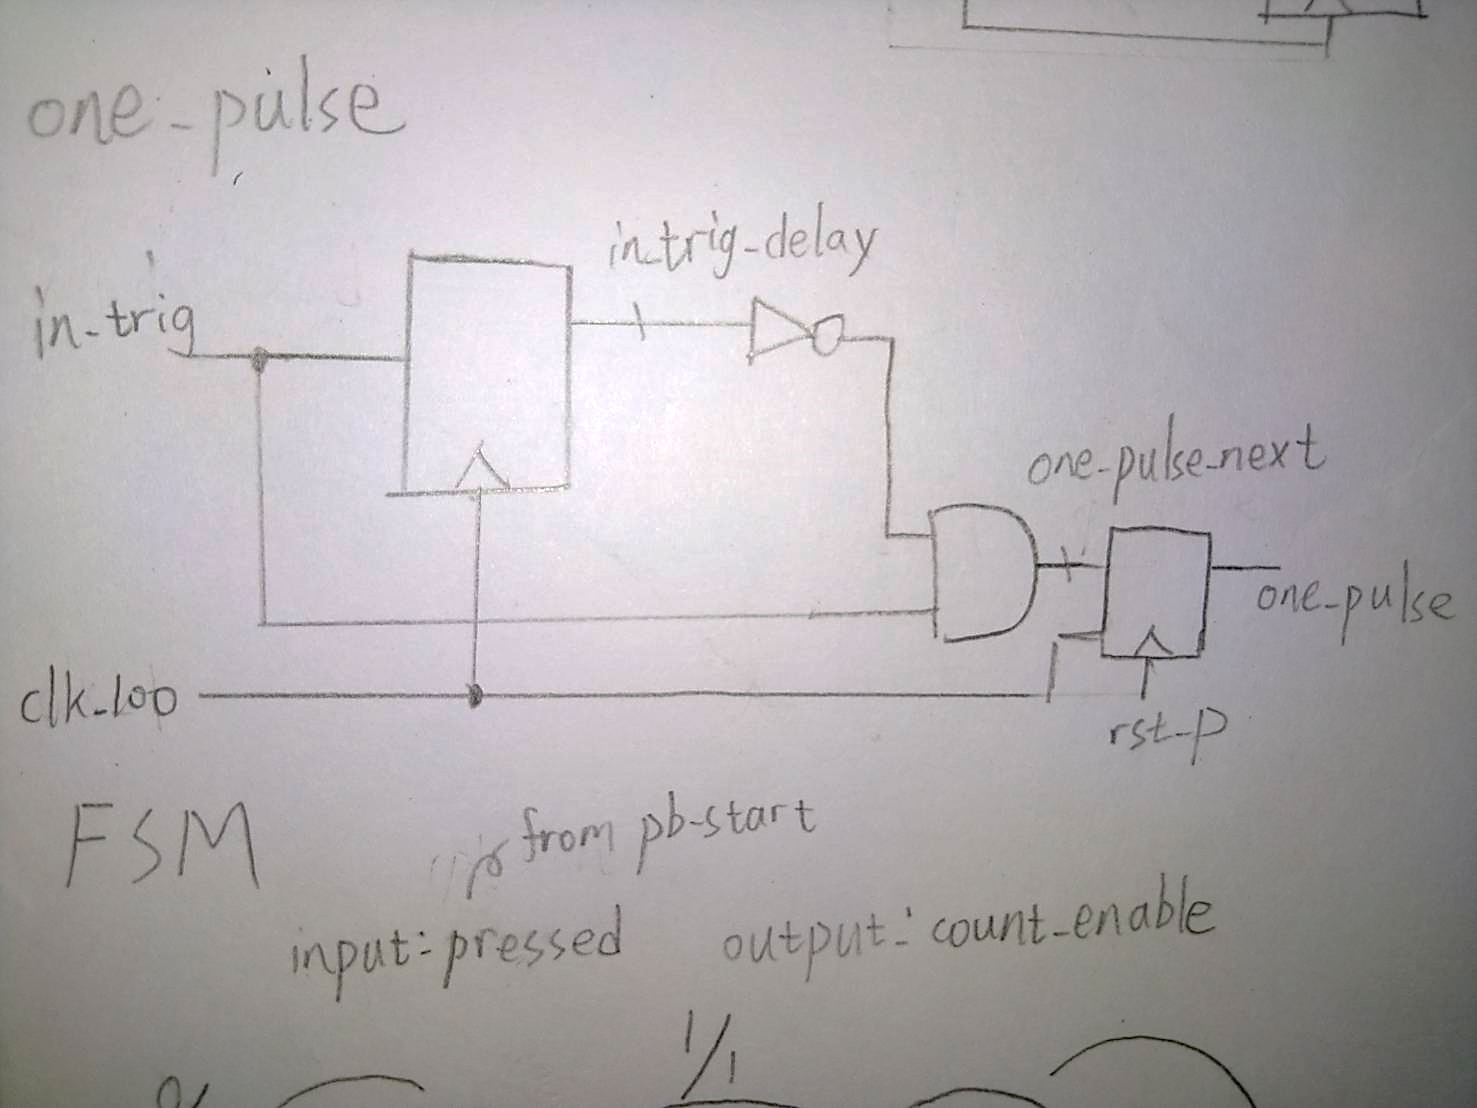 one_pulse
in_trig_delay
in_trig
one_pulse_next
one_pulse
clk_100
rst_p
FSM
from pb_start
input: pressed output: count_enable
1/1